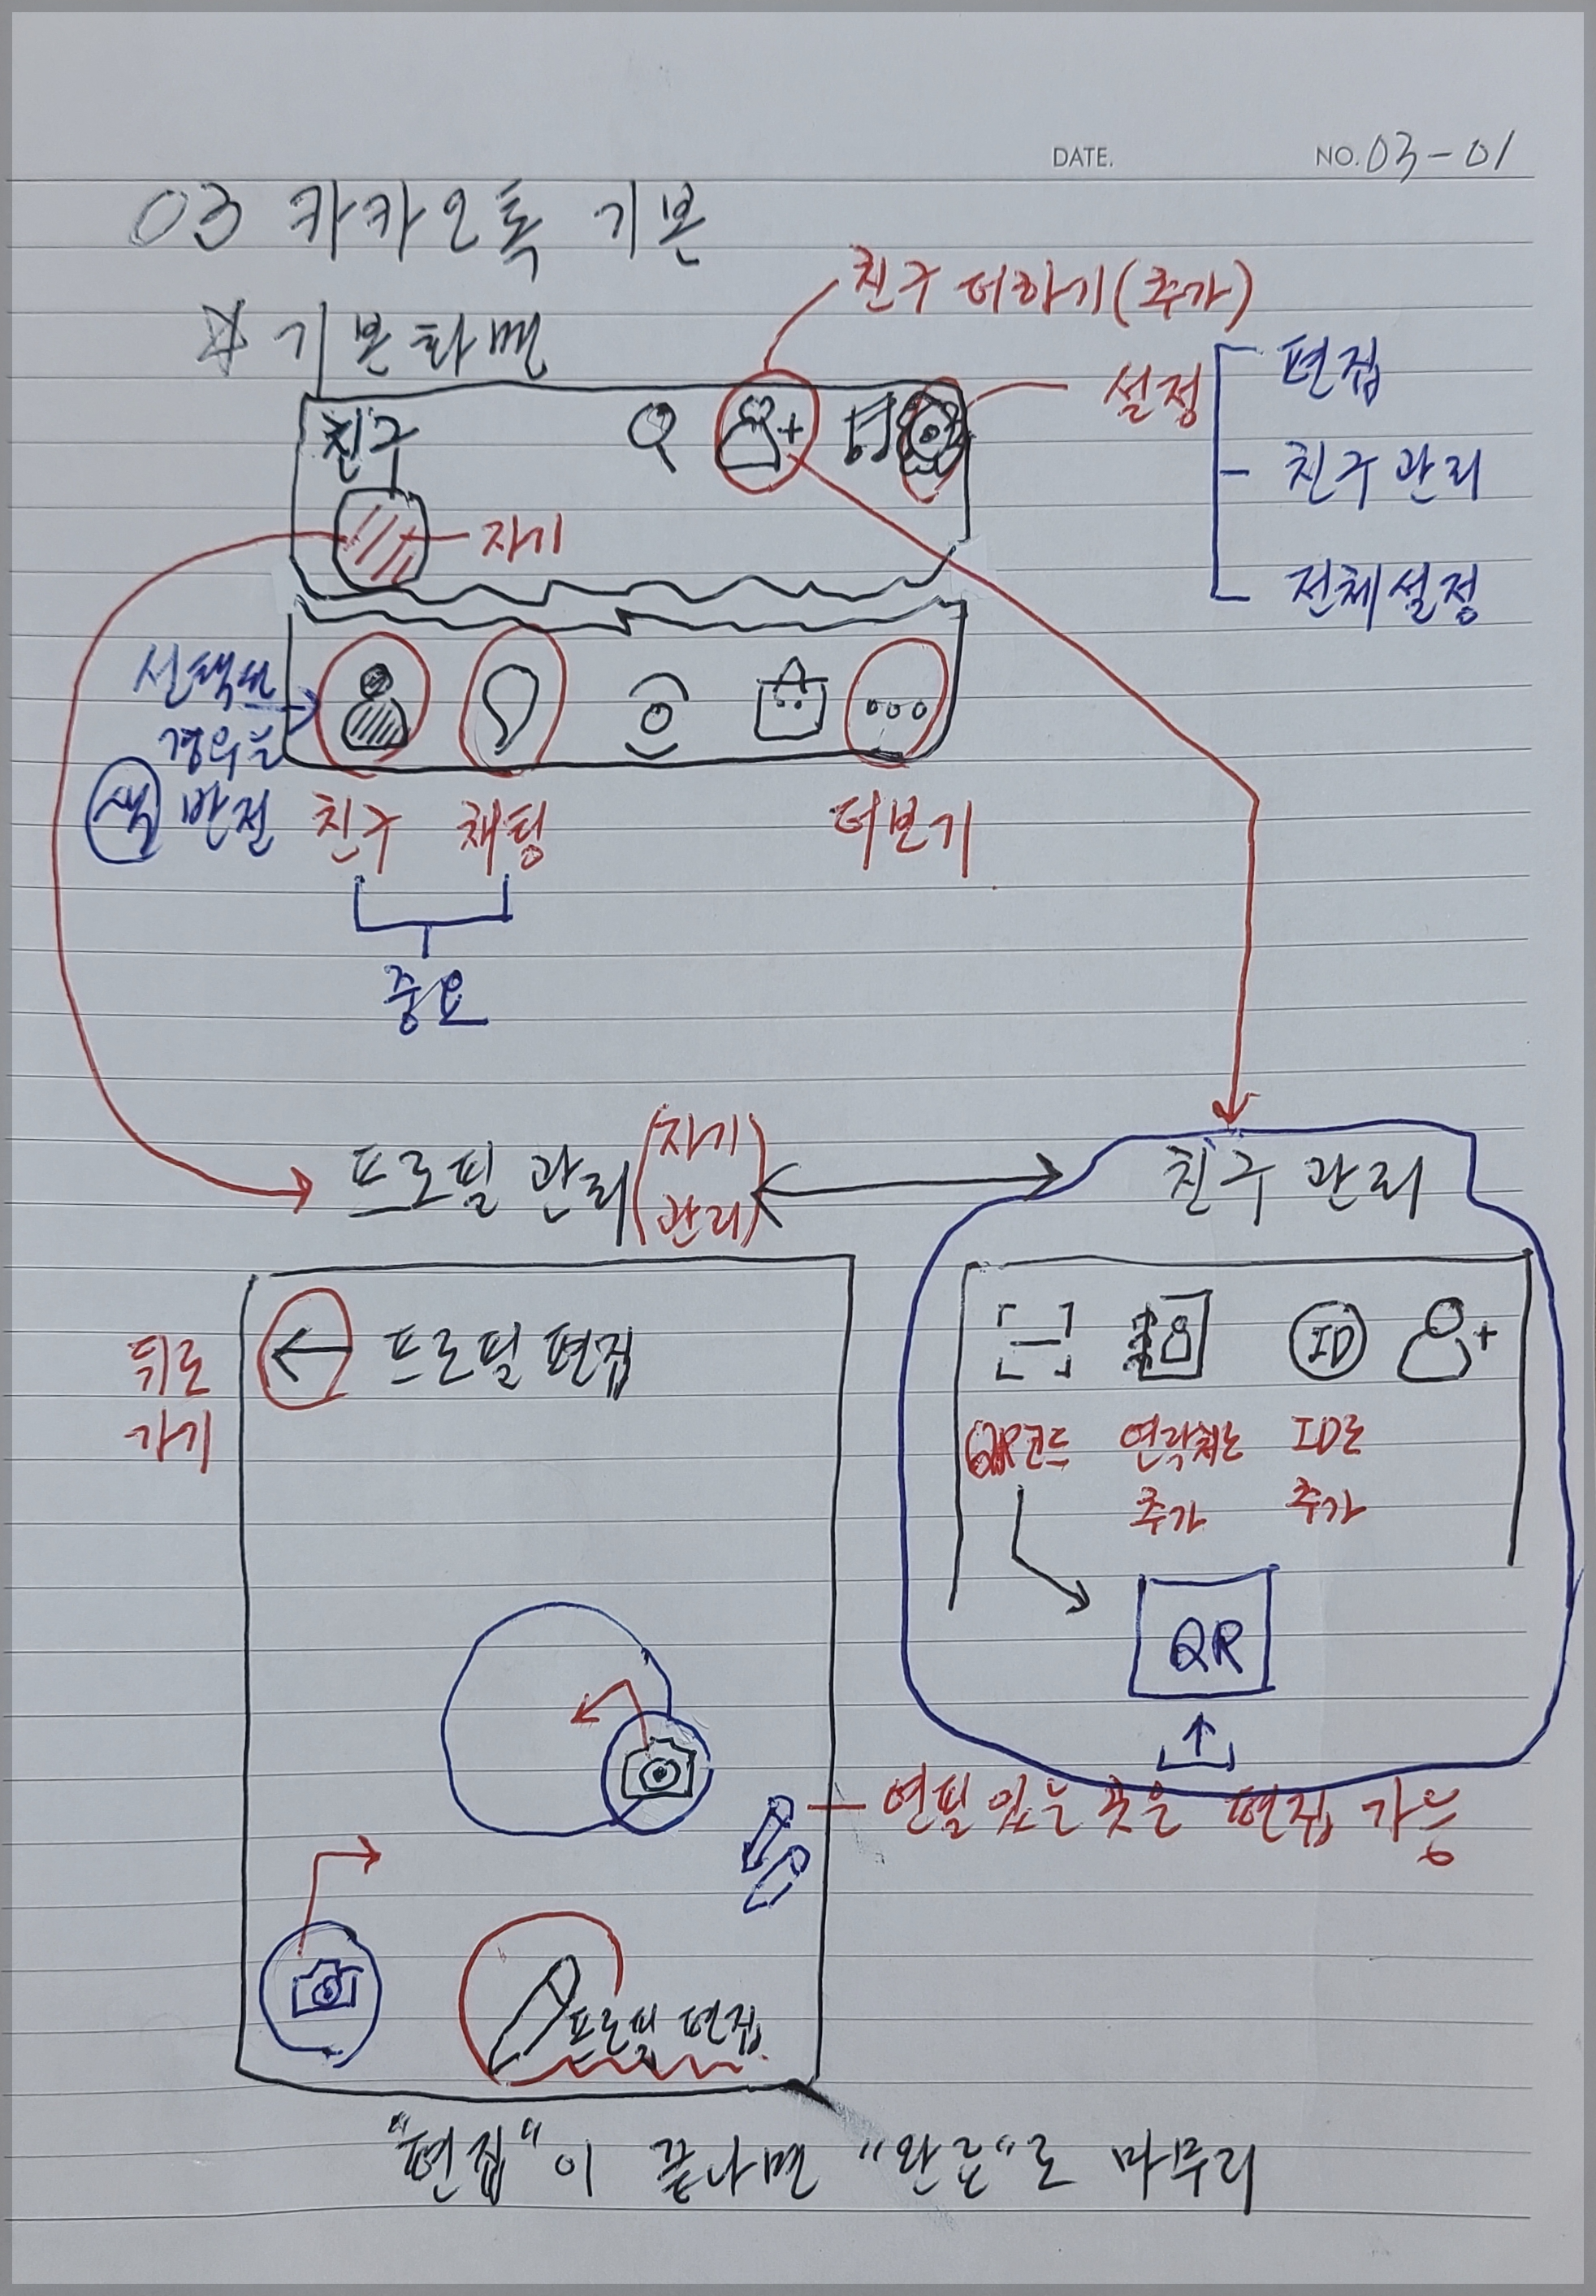 DATE.
NO. 03-01
03 카카오톡 기본
☆ 기본화면
친구 더하기(추가)
설정
편집
친구 관리
전체설정
친구
자기
선택된
경우는
색 반전
친구
채팅
더보기
중요
프로필 관리(자기 관리)
친구 관리
← 프로필 편집
뒤로
가기
ID
QR코드
연락처로
추가
ID로
추가
QR
연필 있는 곳은 편집 가능
프로필 편집
"편집"이 끝나면 "완료"로 마무리